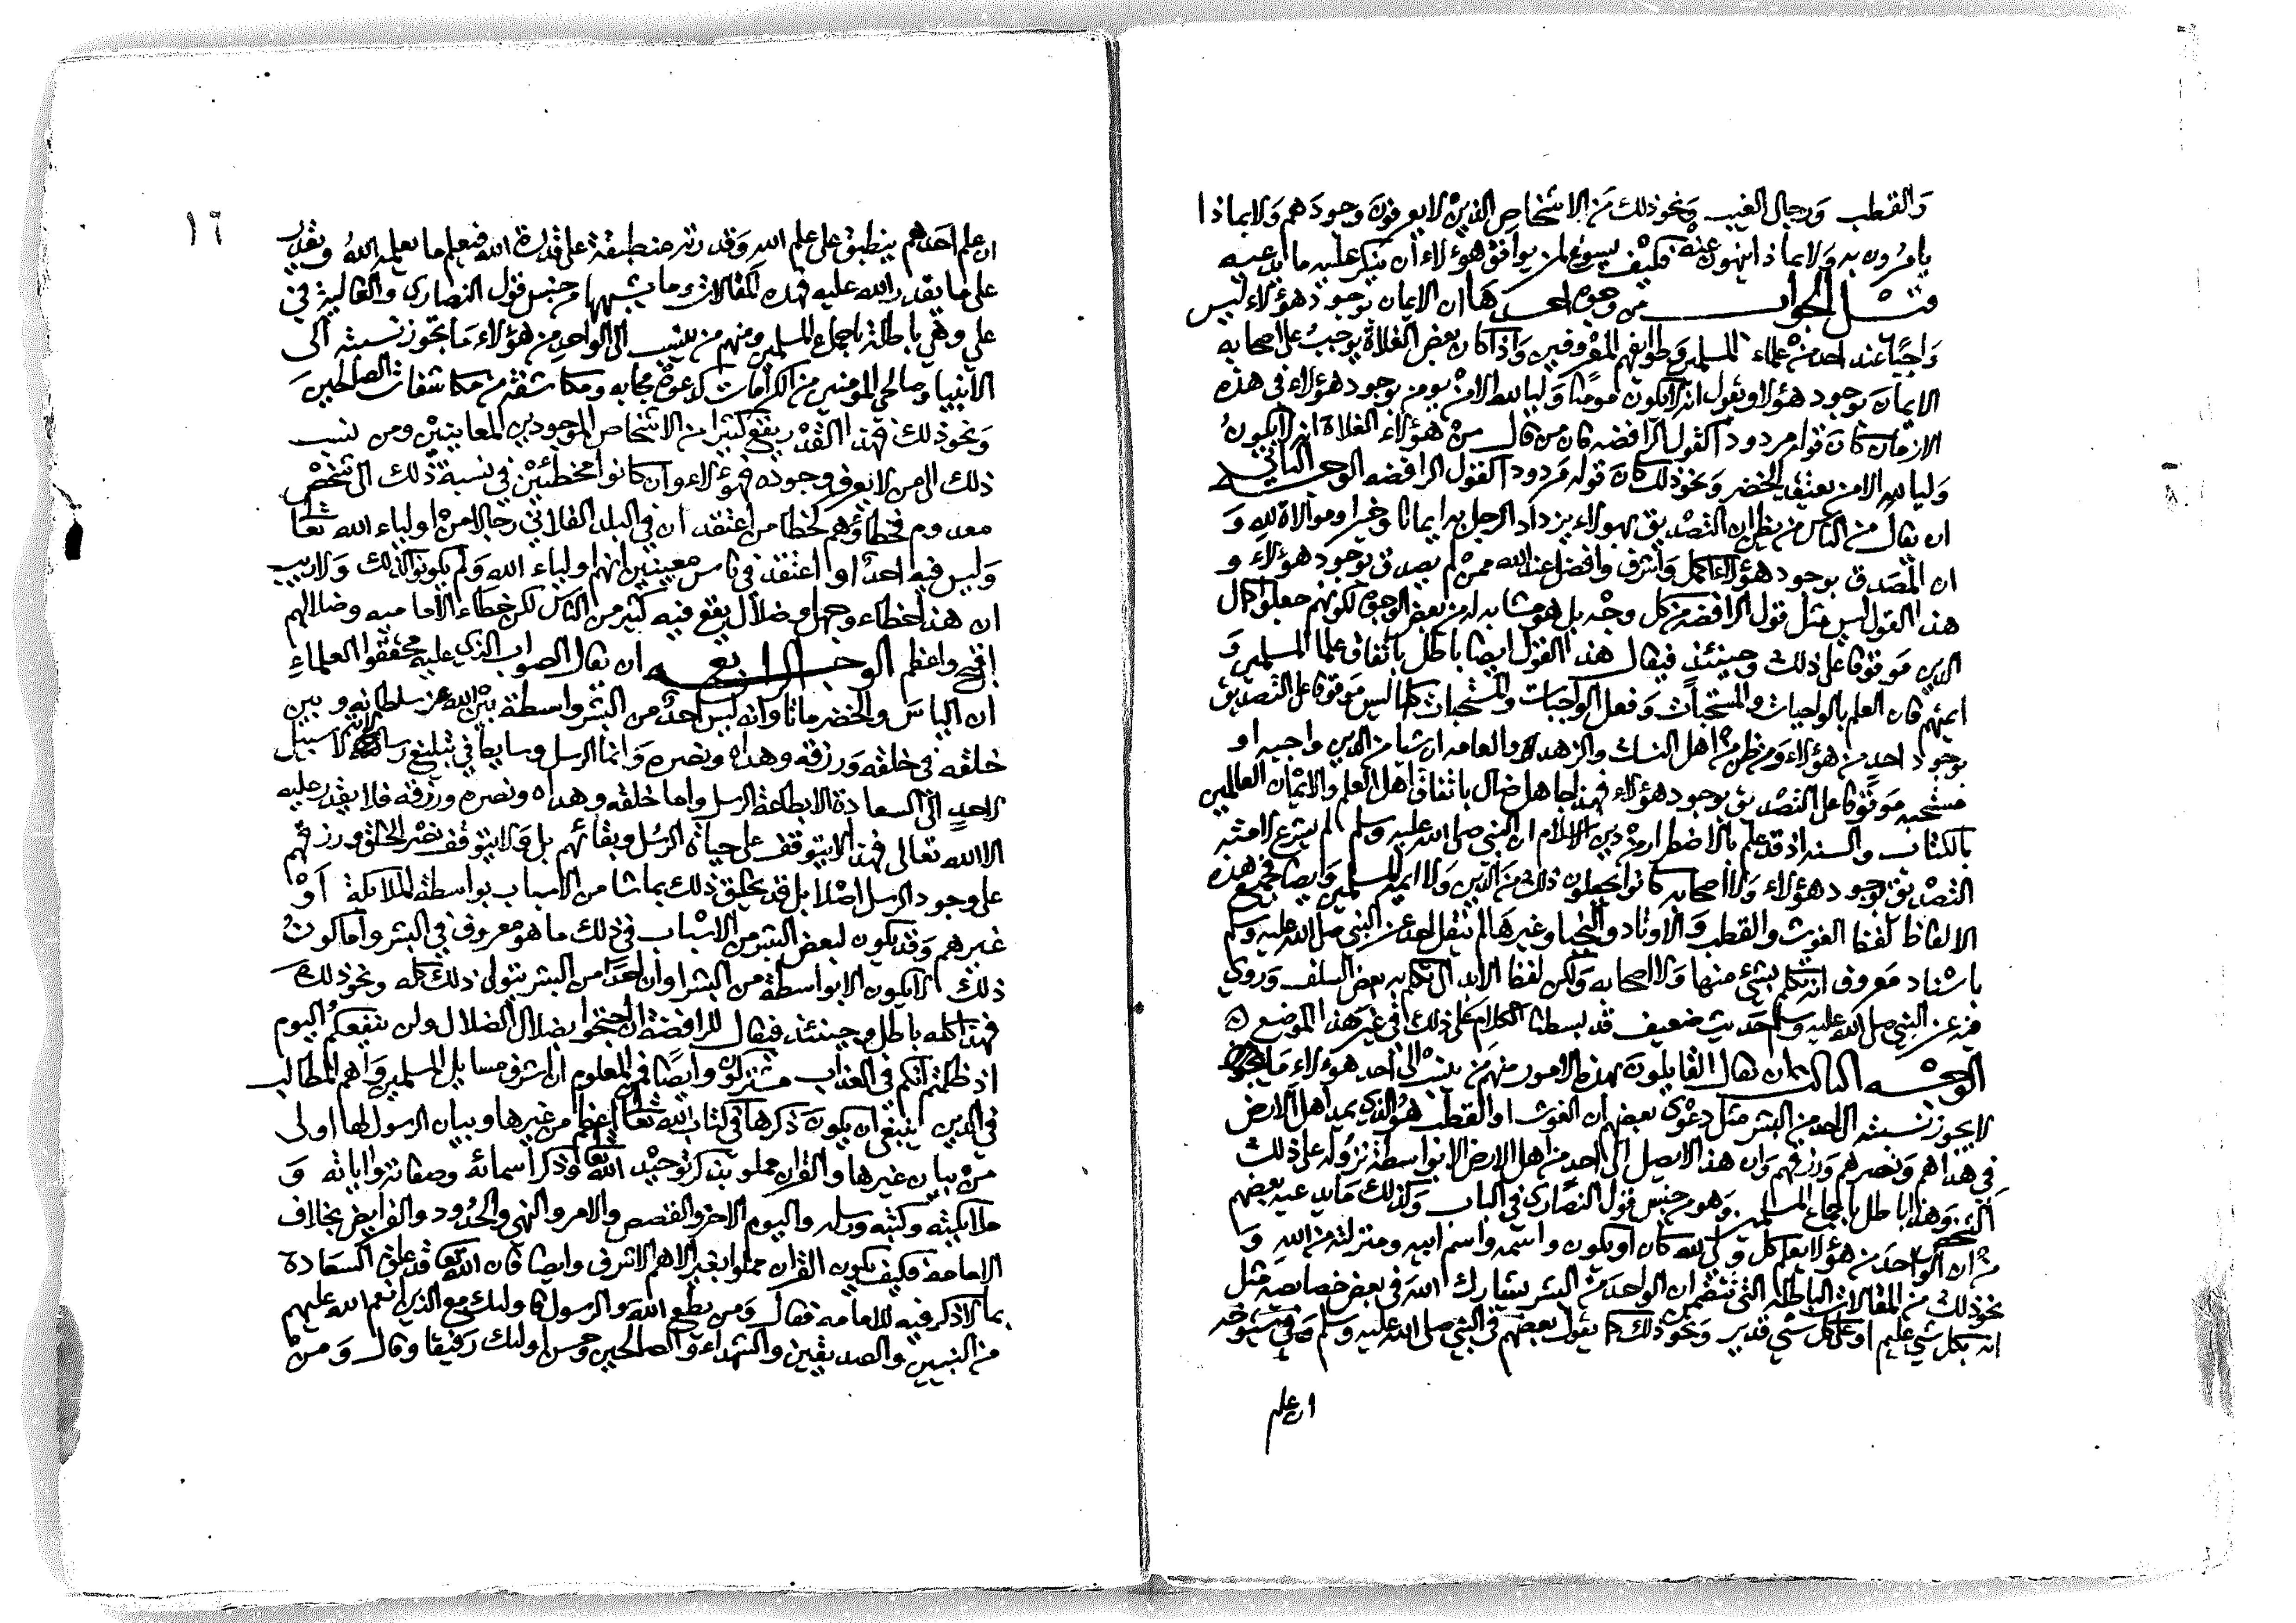 والقطب ورجال الغيب ونحو ذلك من الاشخاص الذين لا يعرفون وجودهم ولا بماذا
يامرون به ولا بماذا ينهون عنه فكيف يسوغ لمن يوافق هؤلاء ان ينكر عليه ما يدعيه
قيل الجواب من وجوه احدها ان الايمان بوجود هؤلاء ليس
واجبا عند احد من علماء المسلمين وطوايفهم المعروفين واذا كان بعض الغلاة يوجب على اصحابه
الايمان بوجود هؤلا ويقول انه لا يكون مومنا وليا لله الا من يومن بوجود هؤلاء في هذه
الازمان كان قوله مردودا كقول الرافضه كان من قال من هؤلاء الغلاة انه لا يكون
وليا لله الا من يعتقد الخضر ونحو ذلك كان قوله مردودا كقول الرافضه الوجه الثاني
ان يقال من الناس من يظن ان التصديق بهولاء يزداد الرجل به ايمانا وخيرا وموالاة لله و
ان المصدق بوجود هؤلاء اكمل واشرف وافضل عند الله ممن لم يصدق بوجود هؤلاء و
هذا القول ليس مثل قول الرافضه من كل وجه بل هو مشابه له من بعض الوجوه لكونهم جعلوا كمال
الدين موقوفا على ذلك وحينئذ فيقال هذا القول ايضا باطل باتفاق علما المسلمين و
ايمتهم فان العلم بالواجبات والمستحبات وفعل الواجبات والمستحبات كلها ليس موقوفا على التصديق
بوجود احد من هؤلاء ومن ظن من اهل النسك والزهد والعامه ان شيا من الدين واجبه او
مستحبه موقوفا على التصديق بوجود هؤلاء فهذا جاهل ضال باتفاق اهل العلم والايمان العالمين
بالكتاب والسنه اذ قد علم بالاضطرار من دين الاسلام ان النبي صلى الله عليه وسلم لم يشرع لامته
التصديق بوجود هؤلاء ولا اصحابه كانوا يجعلون ذلك من الدين ولا ايمة المسلمين وايضا فجميع هذه
الالفاظ لفظ الغوث والقطب والاوتاد والنجبا وغيرها لم ينقل احد عن النبي صلى الله عليه وسلم
باسناد معروف انه تكلم بشئ منها ولا اصحابه ولكن لفظ الابدال تكلم به بعض السلف وروي
فيه عن النبي صلى الله عليه وسلم حديث ضعيف قد بسطنا الكلام على ذلك في غير هذا الموضع
الوجه الثالث ان يقال القايلون بهذه الامور منهم من ينسب الى احد هؤلاء ما
لا يجوز نسبته الى احد من البشر مثل دعوى بعضهم ان الغوث او القطب هو الذي يمد اهل الارض
في هداهم ونصرهم ورزقهم وان هذا لا يصل الى احد من اهل الارض الا بواسطة نزوله على ذلك
الشخص وهذا باطل باجماع المسلمين وهو من جنس قول النصارى في الباب وكذلك ما يدعيه بعضهم
من ان الواحد من هؤلا يعلم كل ولي لله كان او يكون واسمه واسم ابيه ومنزلته من الله و
نحو ذلك من المقالات الباطله التي تتضمن ان الواحد من البشر يشارك الله في بعض خصايصه مثل
انه بكل شي عليم او على كل شي قدير ونحو ذلك كما يقول بعضهم في النبي صلى الله عليه وسلم وفي شيوخه
ان علم
١٦
ان علم احدهم ينطبق على علم الله وقدرته منطبقة على قدرة الله فيعلم ما يعلمه الله ويقدر
على ما يقدر الله عليه فهذه المقالات وما يشبهها من جنس قول النصارى والغالية في
علي وهي باطلة باجماع المسلمين ومنهم من ينسب الى الواحد من هؤلاء ما يجوز نسبته الى
الانبيا وصالحي المومنين من الكرامات كدعوة مجابه ومكاشفة من مكاشفات الصالحين
ونحو ذلك فهذا القدر يقع كثيرا من الاشخاص الموجودين المعاينين ومن نسب
ذلك الى من لا يعرف وجوده فهؤلاء وان كانوا مخطئين في نسبة ذلك الى شخص
معدوم فخطاؤهم كخطا من اعتقد ان في البلد الفلاني رجالا من اولياء الله تعا
وليس فيه احد او اعتقد في ناس معينين انهم اولياء الله ولم يكونوا كذلك ولا ريب
ان هذا خطاء وجهل وضلال يقع فيه كثير من الناس لكن خطاء الامامية وضلالهم
اقبح واعظم الوجه الرابع ان يقال الصواب الذي عليه محققوا العلماء
ان الياس والخضر ماتا وانه ليس احد من البشر واسطة بين الله عز سلطانه وبين
خلقه في خلقه ورزقه وهداه ونصره وانما الرسل وسايط في تبليغ رسالاته لا سبيل
لاحد الى السعادة الا بطاعة الرسل واما خلقه وهداه ونصره ورزقه فلا يقدر عليه
الا الله تعالى فهذا لا يتوقف على حياة الرسل وبقائهم بل ولا يتوقف نصر الخلق ورزقهم
على وجود الرسل اصلا بل قد يخلق ذلك بما شا من الاسباب بواسطة الملائكة او
غيرهم وقد يكون لبعض البشر من الاسباب في ذلك ما هو معروف في البشر واما كون
ذلك لا يكون الا بواسطة من البشر او ان احدا من البشر يتولى ذلك كله ونحو ذلك
فهذا كله باطل وحينئذ فيقال للرافضة اذا احتجوا بضلال الضلال ولن ينفعكم اليوم
اذ ظلمتم انكم في العذاب مشتركون وايضا فمن المعلوم ان اشرف مسايل المسلمين واهم المطالب
في الدين ينبغي ان يكون ذكرها في كتاب الله تعا اعظم من غيرها وبيان الرسول لها اولى
من بيان غيرها والقران مملو بذكر توحيد الله تعا وذكر اسمائه وصفاته واياته و
ملايكته وكتبه ورسله واليوم الاخر والقصص والامر والنهي والحدود والفرايض بخلاف
الامامة فكيف يكون القران مملوا بغير الاهم الاشرف وايضا فان الله تعا قد علق السعادة
بما لا ذكر فيه للامامه فقال ومن يطع الله والرسول فاولئك مع الذين انعم الله عليهم
من النبيين والصديقين والشهداء والصالحين وحسن اولئك رفيقا وقال ومن